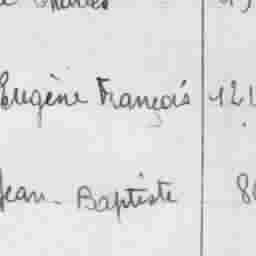 Charles
Eugène François 121
Jean-Baptiste 80